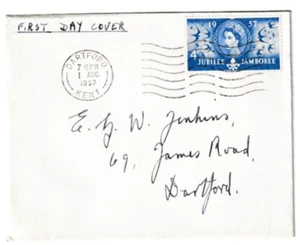 FIRST DAY COVER
19 57
4
JUBILEE JAMBOREE
DARTFORD
7 15 PM
1 AUG
1957
KENT
E. G. W. Jenkins,
69, James Road,
Dartford.